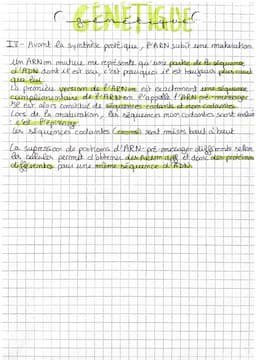 GENETIQUE
(génétique)
II - Avant la synthèse protéique, l'ARN subit une maturation
Un ARNm mature ne représente qu'une partie de la séquence
d'ADN dont il est issu, c'est pourquoi il est toujours plus court
que lui
La première version de l'ARNm est exactement une séquence
complémentaire de l'ARNm on l'appelle l'ARN pré-messager
Il est alors constitué de séquences codantes et non codantes
Lors de la maturation, les séquences non codantes sont
: c'est l'épissage
Les séquences codantes (exons) sont mises bout à bout
La supression de portions d'ARN-pré-messager différents selon
les cellules permet d'obtenir des ARNm diff et donc des protéines
différentes pour une même séquence d'ADN